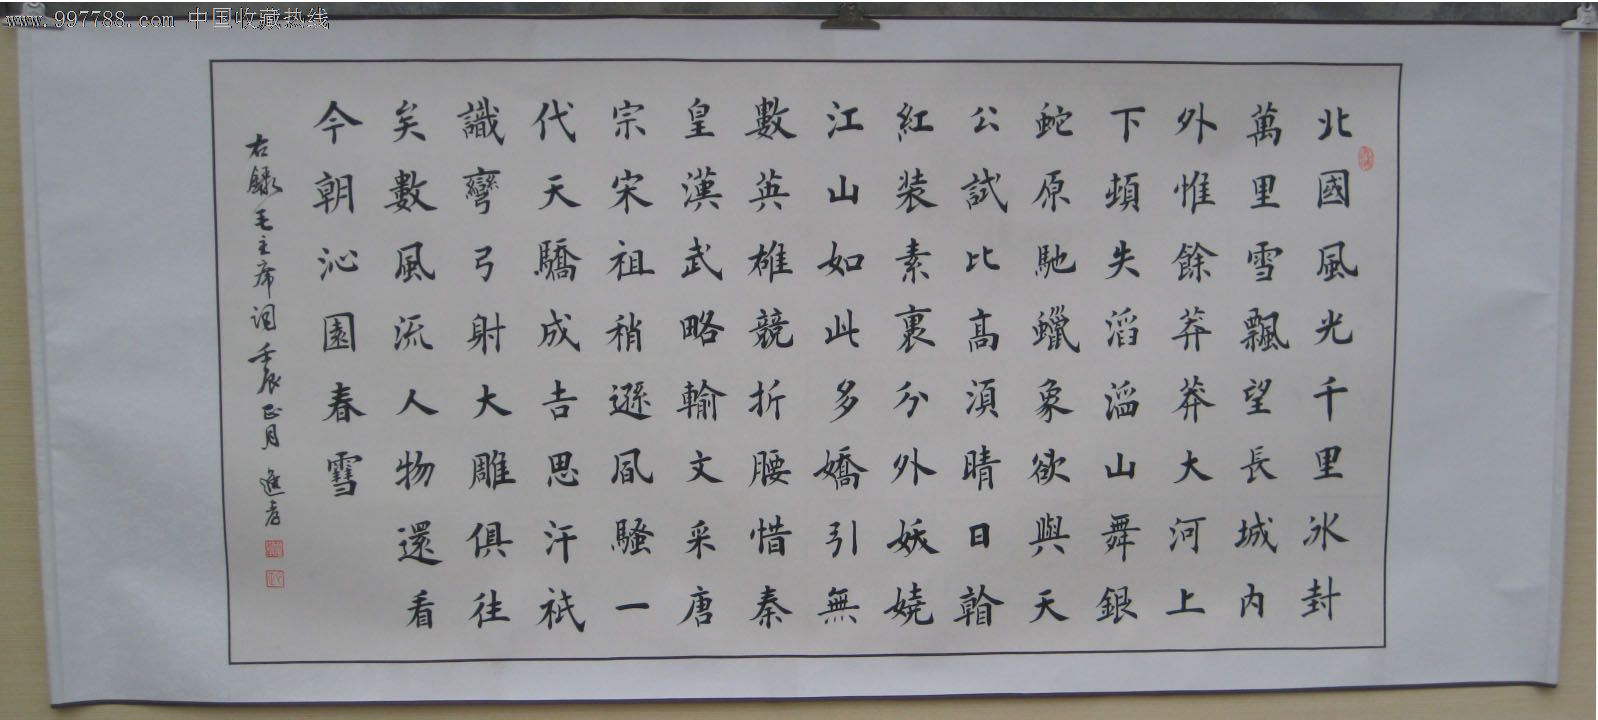 www.997788.com 中国收藏热线
北國風光千里冰封
萬里雪飄望長城內
外惟餘莽莽大河上
下頓失滔滔山舞銀
蛇原馳蠟象欲與天
公試比高須晴日看
紅装素裹分外妖嬈
江山如此多嬌引無
數英雄競折腰惜秦
皇漢武略輸文采唐
宗宋祖稍遜風騷一
代天驕成吉思汗祇
識彎弓射大雕俱往
矣數風流人物還看
今朝沁園春雪
右錄毛主席詞壬辰正月進孝